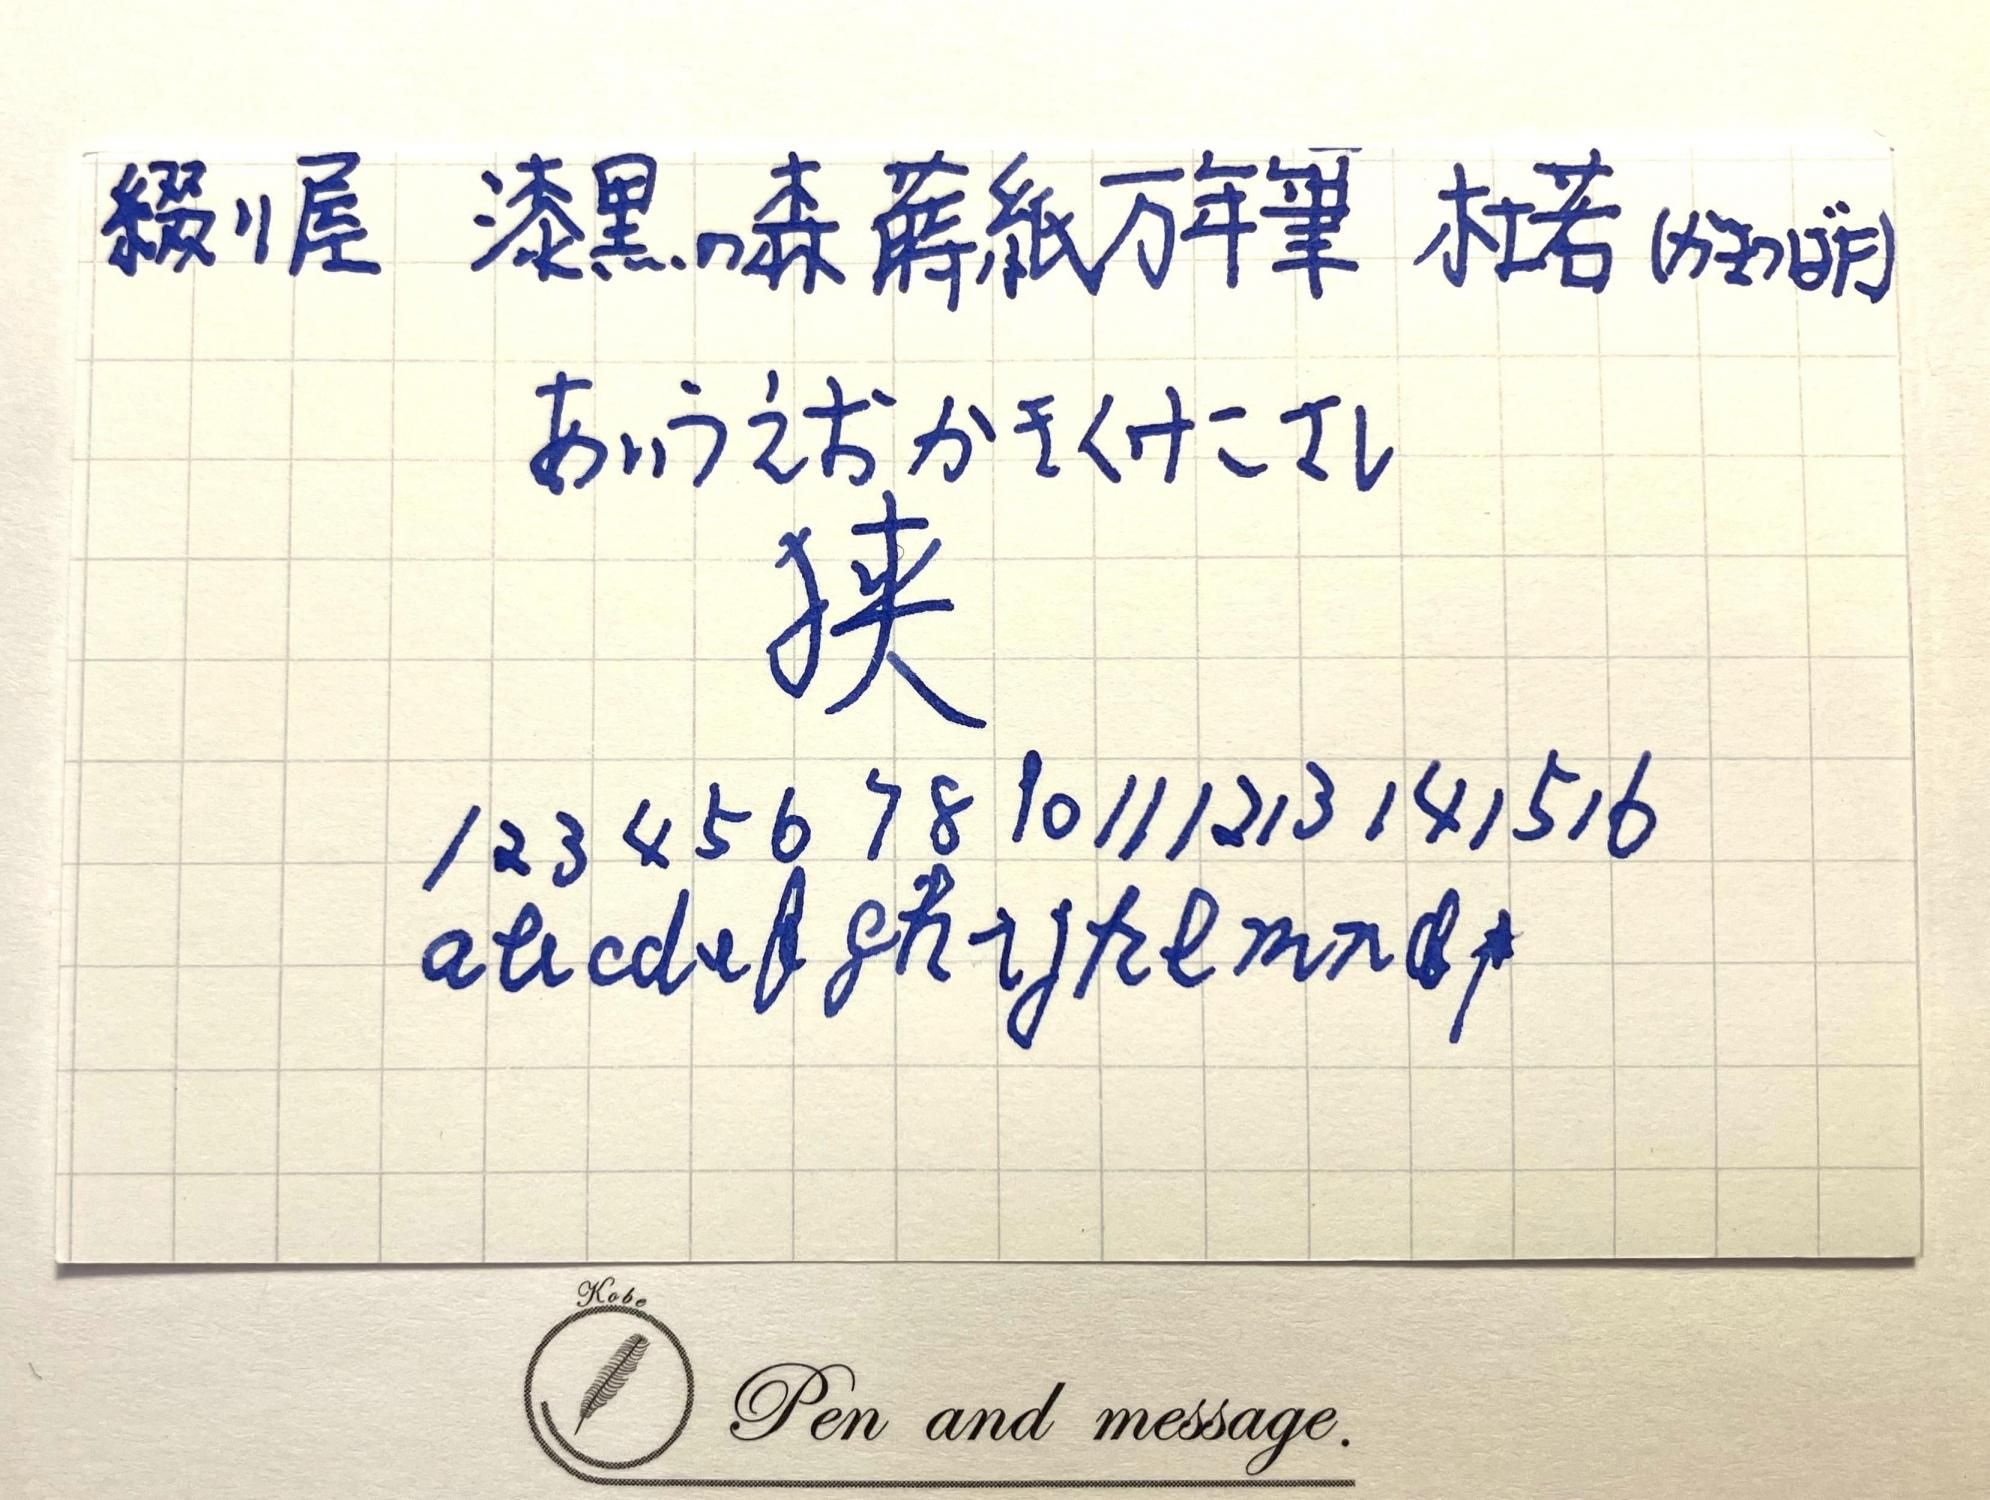 綴り屋 漆黒の森 蒔紙万年筆 杜若(かきつばた)
あいうえおかきくけこさし
狭
1 2 3 4 5 6 7 8 10 11 12 13 14 15 16
a b c d e f g h i j k l m n o p
Kobe
Pen and message.